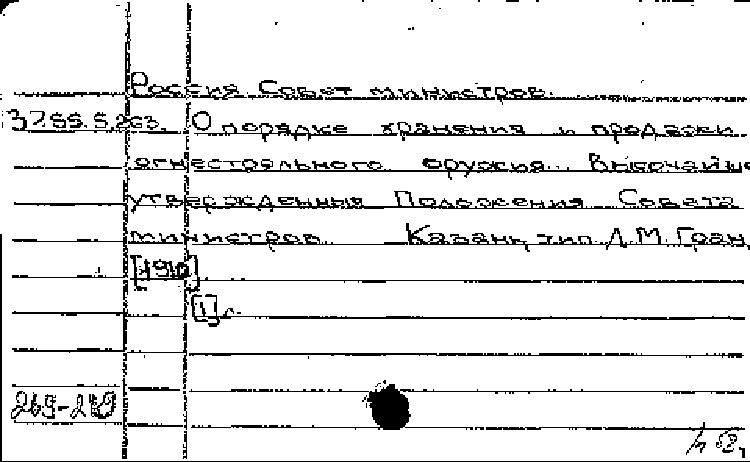 Россия. Совет министров.
О порядке хранения и продажи
огнестрельного оружия. Высочайше
утвержденныя Положения Совета
министров. Казань, тип. Л.М. Гран
[1910].
[1] с.